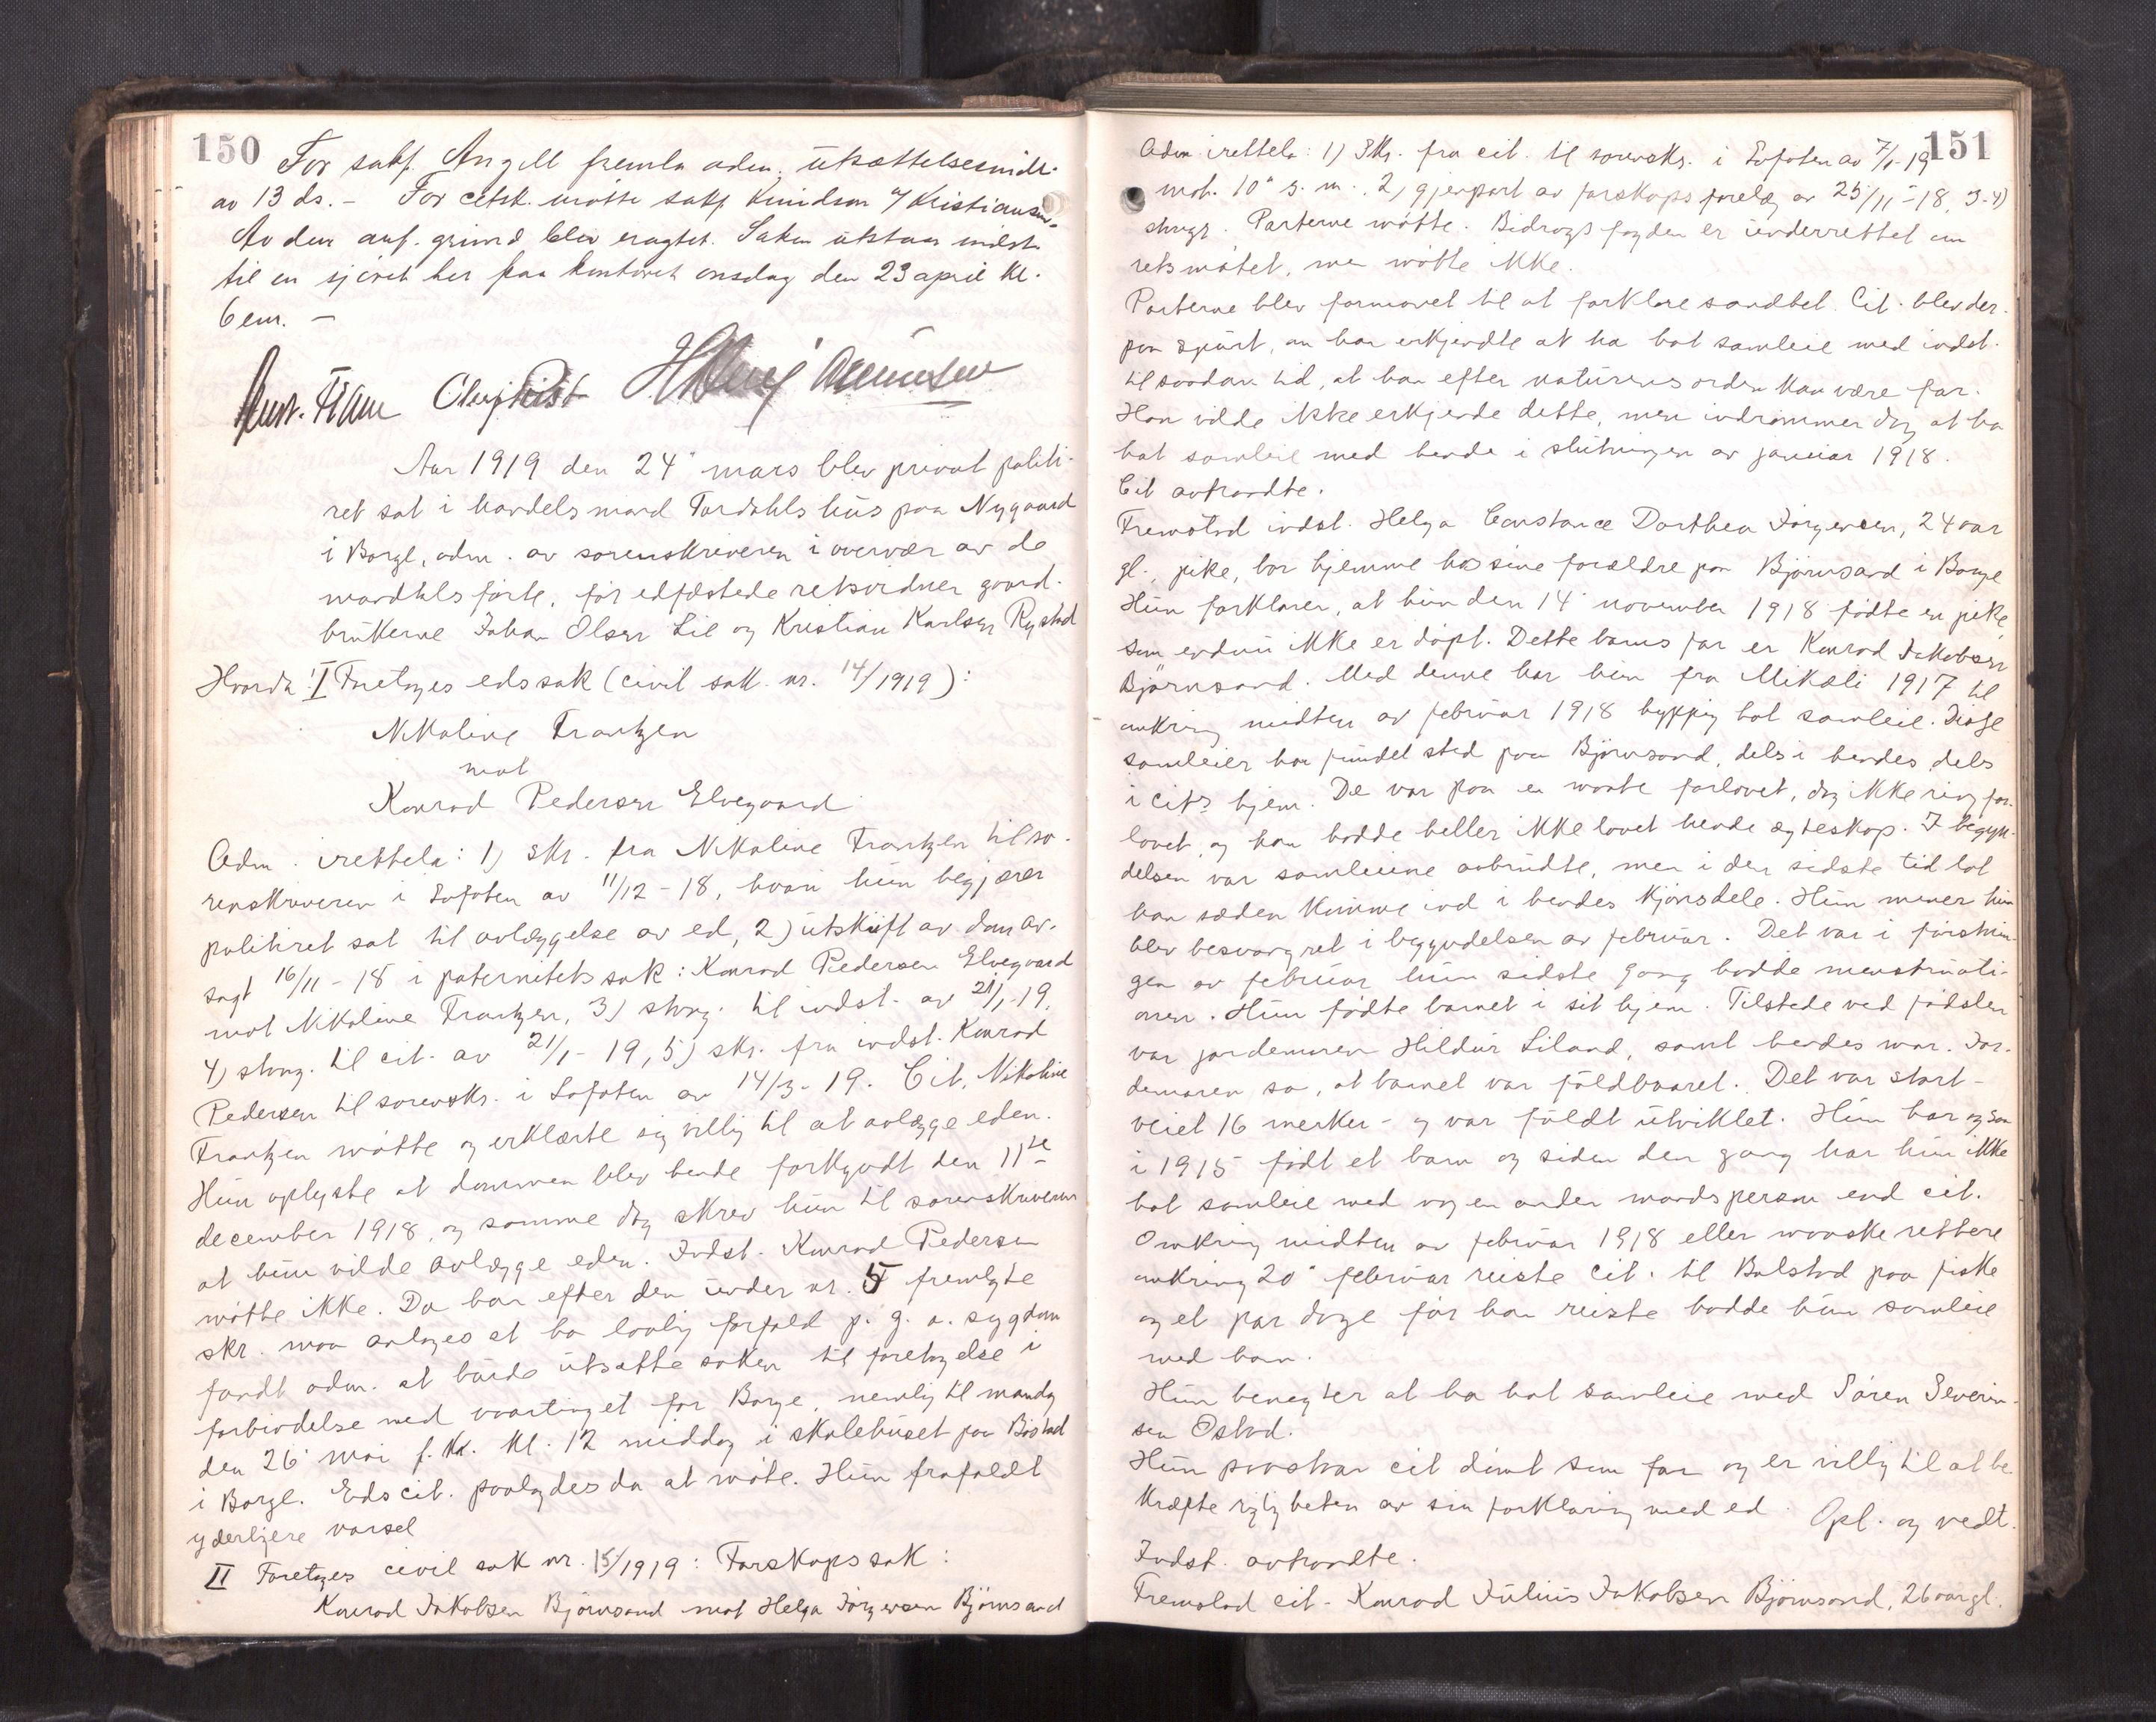 150
For sakf. Angell fremla adm. utsættelsesmidl.
av 13 ds. - For citsk. møtte sakf. Knudsen v/ Kristiansen.
Av den anf. grund blev eragtet. Saken utstaar indst.
til en sjøret her paa kontoret onsdag den 23 april kl.
6 em. -
Aar 1919 den 24' mars blev privat politi-
ret sat i handelsmand Tordahls hus paa Nygaard
i Borge, adm. av sorenskriveren i overvær av de
mandtalsførte, før edfæstede retsvidner gaard-
brukerne Johan Olsen Lie og Kristian Karlsen Rystad
Hvorda: I Foretages edssak (civil sak nr. 14/1919):
Nikoline Frantzen
mot
Konrad Pedersen Elvegaard
Adm. irettela: 1) skr. fra Nikoline Frantzen til so-
renskriveren i Lofoten av 11/12 - 18, hvori hun begjærer
politiret sat til avlæggelse av ed, 2) utskrift av dom av-
sagt 16/11 - 18 i paternitetssak: Konrad Pedersen Elvegaard
mot Nikoline Frantzen, 3) stvng. til indst. av 21/1-19,
4) stvng. til cit. av 21/1 - 19, 5) skr. fra indst. Konrad
Pedersen til sorenskr. i Lofoten av 14/3 - 19. Cit. Nikoline
Frantzen møtte og erklærte sig villig til at avlægge eden.
Hun oplyste at dommen blev hende forkyndt den 11te
december 1918, og samme dag skrev hun til sorenskriveren
at hun vilde avlægge eden. Indst. Konrad Pedersen
møtte ikke. Da han efter den under nr. 5 fremlagte
skr. maa antages at ha lovlig forfald p. g. a. sygdom
fandt adm. at burde utsætte saken til foretagelse i
forbindelse med vaartinget for Borge, nemlig til mandag
den 26' mai f. kl. 12 middag i skolehuset paa Bøstad
i Borge. Edscit. paalagdes da at møte. Hun frafaldt
yderligere varsel
II Foretages civil sak nr. 15/1919: Farskapssak:
Konrad Jakobsen Bjørnsand mot Helga Jørgensen Bjørnsand
151
Adm. irettela: 1) Skr. fra cit. til sorenskr. i Lofoten av 7/1-19
mot. 10' s. m., 2) gjenpart av farskapsforelæg av 25/11-18, 3-4)
stvngr. Parterne møtte. Bidragsfogden er underrettet om
retsmøtet, men møtte ikke.
Parterne blev formanet til at forklare sandhet. Cit. blev der-
paa spurt, om han erkjendte at ha hat samleie med indst.
til saadan tid, at han efter naturens orden kan være far.
Han vilde ikke erkjende dette, men indrømmer dog at ha
hat samleie med hende i slutningen av januar 1918.
Cit avtraadte.
Fremstod indst. Helga Constance Dorthea Jørgensen, 24 aar
gl., pike, bor hjemme hos sine forældre paa Bjørnsand i Borge
Hun forklarer, at hun den 14' november 1918 fødte en pike,
som endnu ikke er døpt. Dette barns far er Konrad Jakobsen
Bjørnsand. Med denne har hun fra Mikæli 1917 til
omkring midten av februar 1918 hyppig hat samleie. Disse
samleier har fundet sted paa Bjørnsand, dels i hendes, dels
i cits hjem. De var paa en maate forlovet, dog ikke ringfor-
lovet, og han hadde heller ikke lovet hende egteskap. I begyn-
delsen var samleiene avbrudte, men i den sidste tid lot
han sæden komme ind i hendes kjønsdele. Hun mener hun
blev besvangret i begyndelsen av februar. Det var i førstnin-
gen av februar hun sidste gang hadde menstruati-
onen. Hun fødte barnet i sit hjem. Tilstede ved fødslen
var jordemoren Hildur Liland, samt hendes mor. Jor-
demoren sa, at barnet var fuldbaaret. Det var stort -
veiet 16 merker - og var fuldt utviklet. Hun har ogsaa
i 1915 født et barn og siden den gang har hun ikke
hat samleie med nogen anden mandsperson end cit.
Omkring midten av februar 1918 eller maaske rettere
omkring 20' februar reiste cit. til Balstad paa fiske
og et par dage før han reiste hadde hun samleie
med ham.
Hun benegter at ha hat samleie med Søren Severin-
sen Østad.
Hun paastaar cit dømt som far og er villig til at be-
kræfte rigtigheten av sin forklaring med ed. Opl. og vedt.
Indst. avtraadte.
Fremstod cit. Konrad Julius Jakobsen Bjørnsand, 26 aar gl.